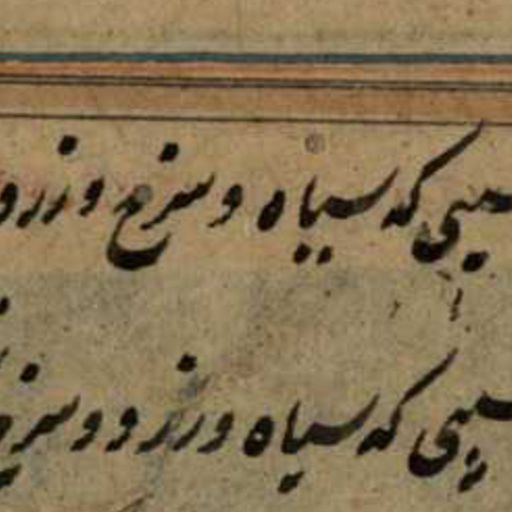 سیبی که سیاه و سرخ و زرد
سیبی که سیاه و زرد و و سرخ